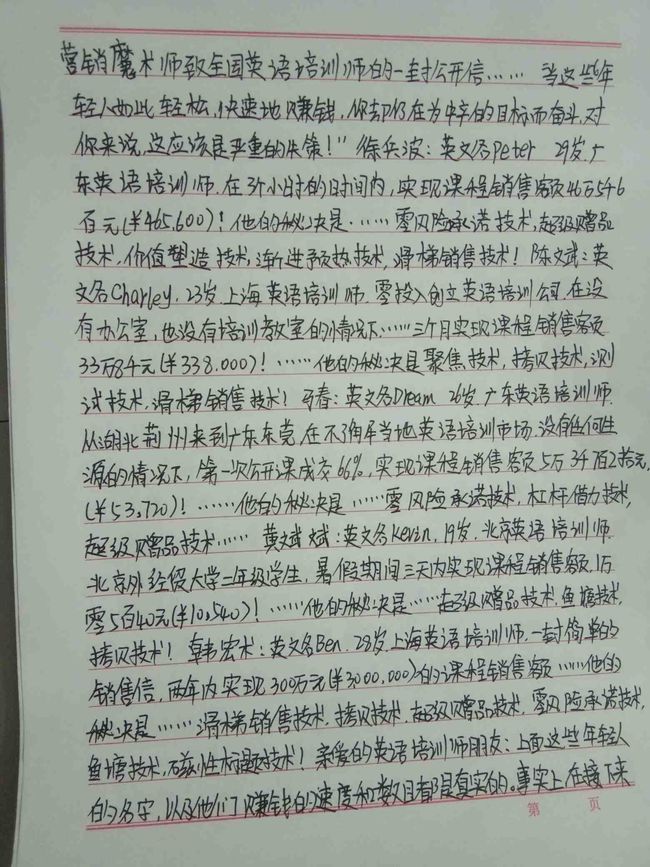 营销魔术师致全国英语培训师的一封公开信…… 当这些年
轻人如此轻松,快速地赚钱,你却仍在为中卒的目标而奋斗,对
你来说,这应该是严重的失策!” 徐兵波:英文名Peter 29岁,广
东英语培训师.在3个小时的时间内,实现课程销售额46万5仟6
百元(¥465,600)!他的秘决是……零风险承诺技术,超级赠品
技术,价值塑造技术,渐进予预热技术,滑梯销售技术!陈文斌:英
文名Charley.23岁.上海英语培训师.零投入创立英语培训公司.在没
有办公室,也没有培训教室的情况下……三个月实现课程销售额
33万8仟元(¥338.000)!……他的秘决是聚焦技术,拷贝技术,测
试技术,滑梯销售技术!弓春:英文名Dream 26岁.广东英语培训师.
从湖北荆州来到广东东莞,在不了解当地英语培训市场.没有任何生
源的情况下,第一次公开课成交66%,实现课程销售额5万3仟7佰2拾元,
(¥53,720)!……他的秘决是……零风险承诺技术,杠杆借力技术,
超级赠品技术…… 黄斌斌:英文名Kevin,19岁.北京英语培训师.
北京外经贸大学二年级学生,暑假期间三天内实现课程销售额,1万
零5百40元(¥10,540)!……他的秘决是……超级赠品技术.鱼塘技术,
拷贝技术!韩宏术:英文名Ben.28岁.上海英语培训师.一封简单的
销售信,两年内实现300万元(¥3,000,000)的课程销售额……他的
秘决是……滑梯销售技术,拷贝技术,超级赠品技术,零风险承诺技术,
鱼塘技术,磁性标题技术!亲爱的英语培训师朋友:上面这些年轻人
的名字,以及他们赚钱的速度和数目都是真实的。事实上,在接下来
第 页